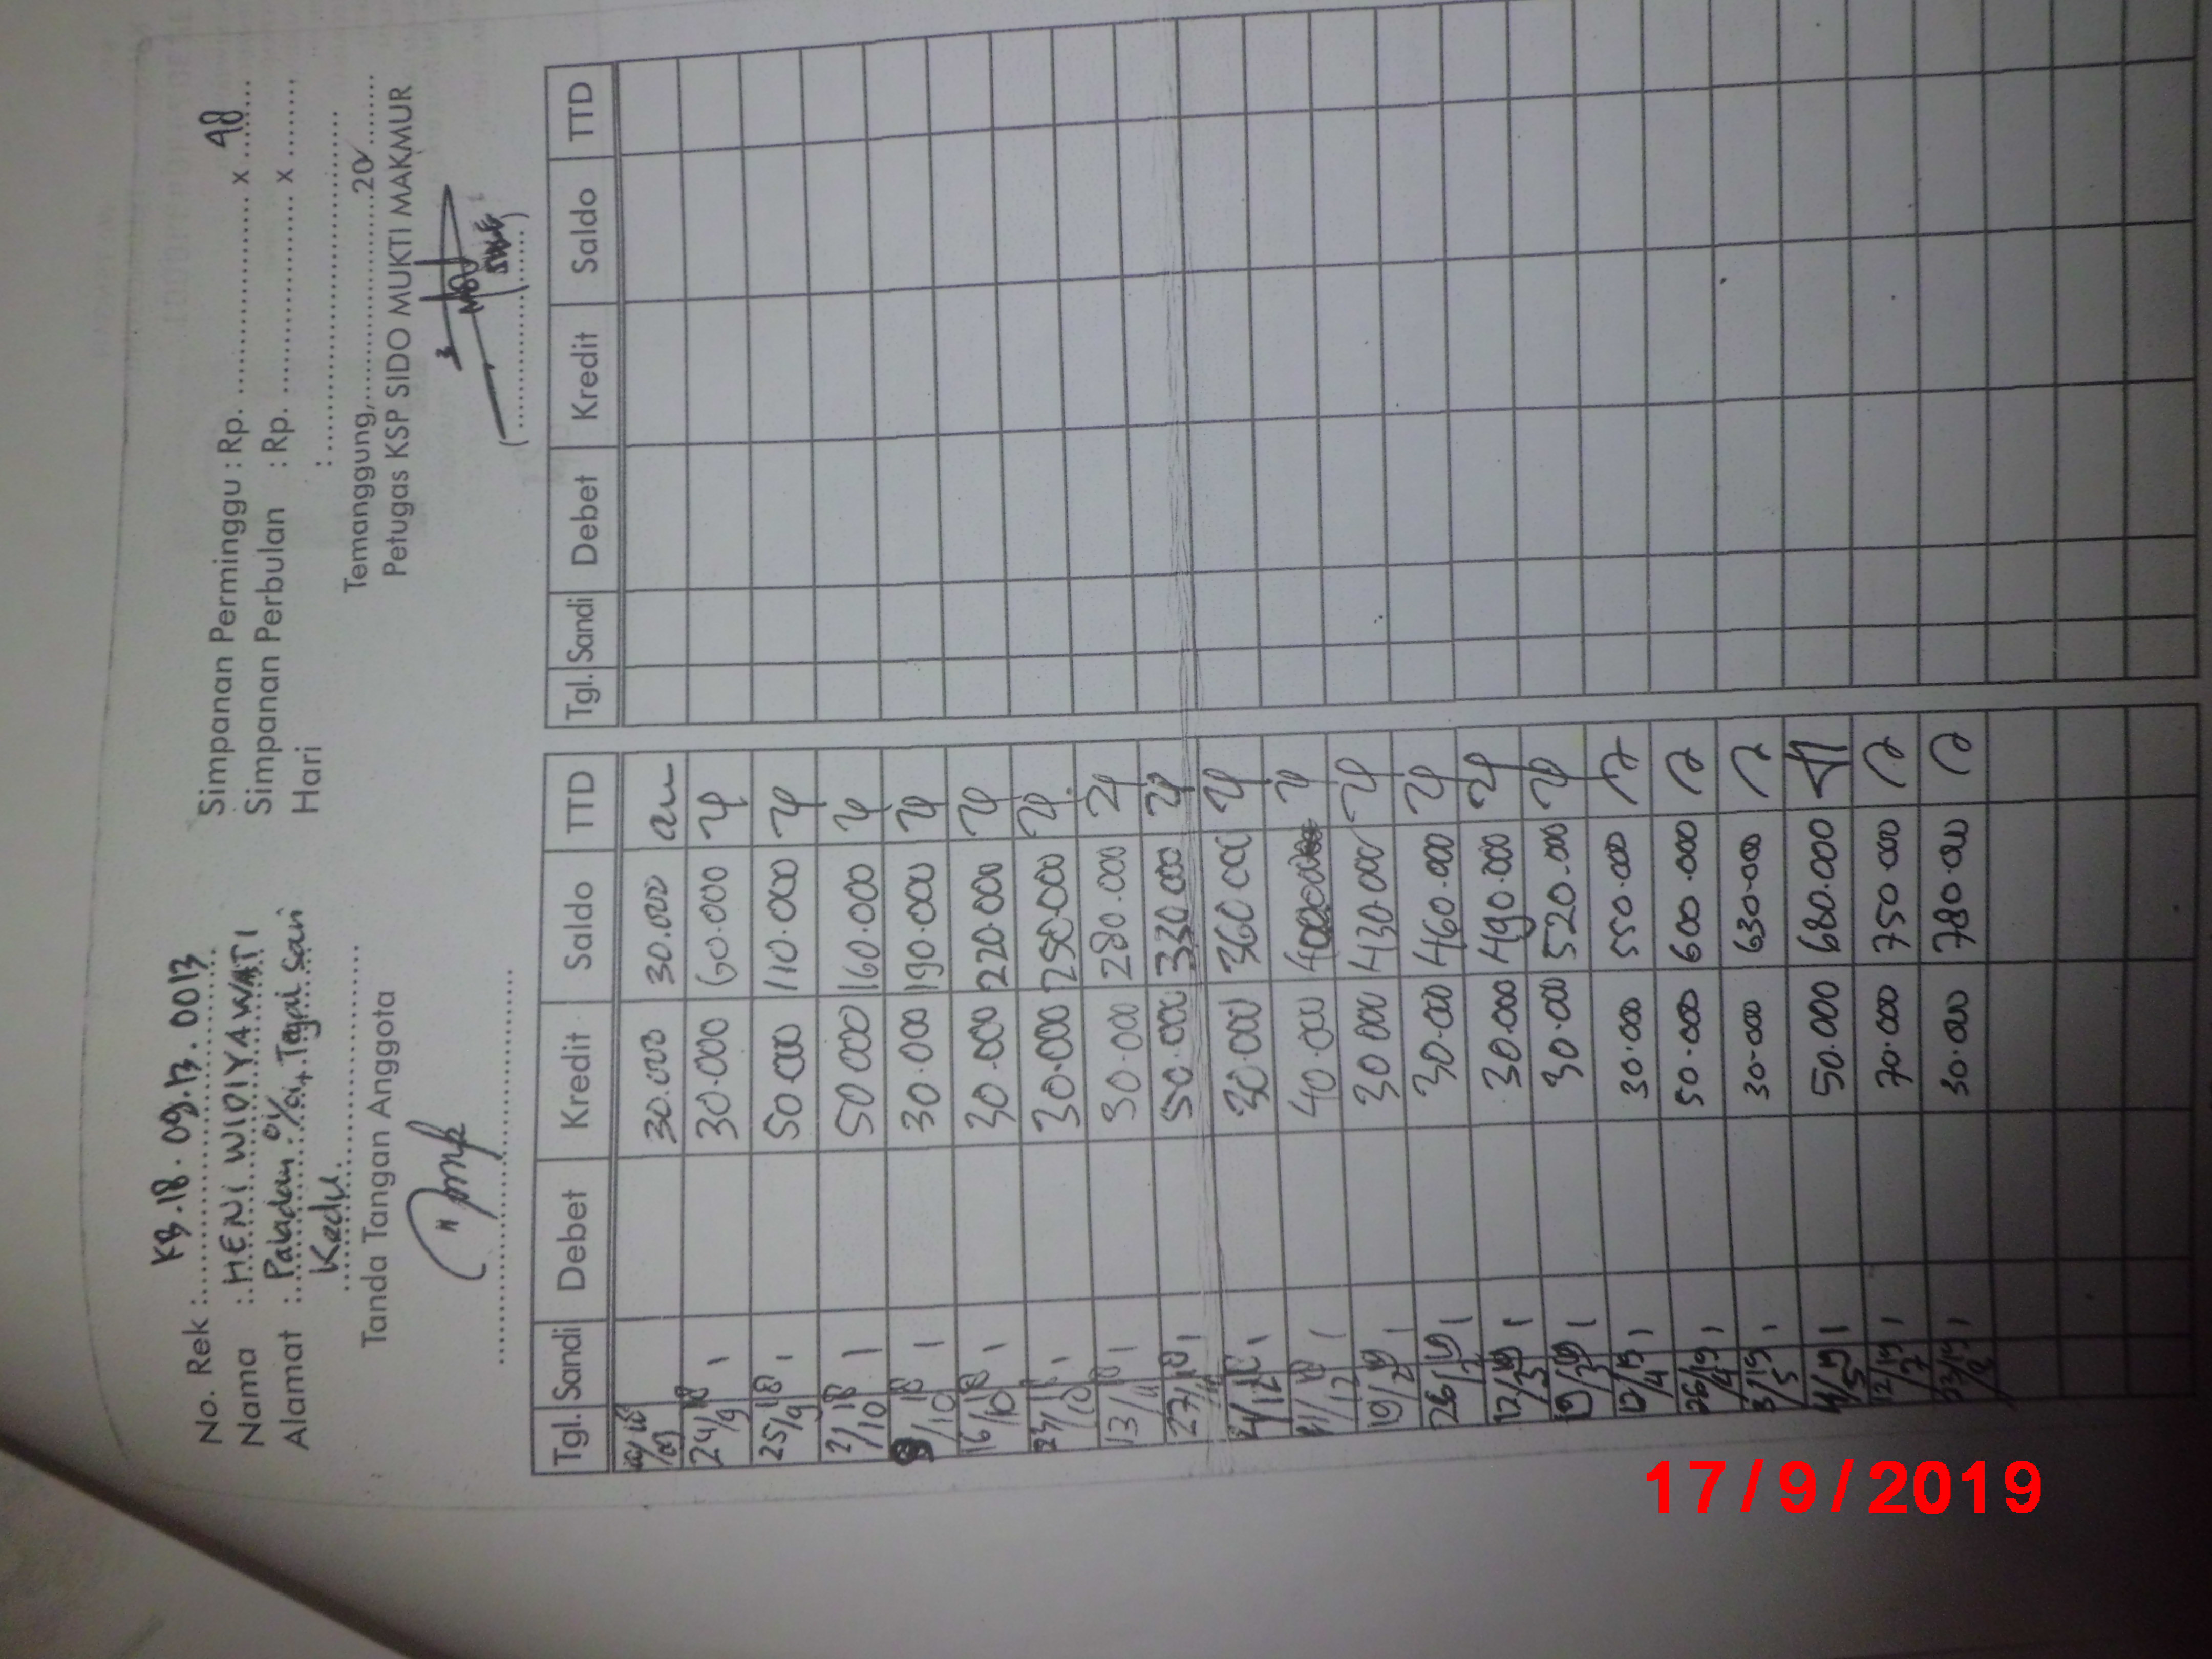 No. Rek : KB.18.09.13.0013
Nama : HENI WIDIYAWATI
Alamat : Paladan Tegal Sari
Kedu
Tanda Tangan Anggota
Simpanan Perminggu : Rp. x 48
Simpanan Perbulan : Rp. x
Hari :
Temanggung, 20
Petugas KSP SIDO MUKTI MAKMUR
Tgl. Sandi Debet Kredit Saldo TTD
30.000 30.000
24/9 18 1 30.000 60.000
25/9 18 1 50.000 110.000
2/10 18 1 50 000 160.000
9/10 18 1 30.000 190.000
16/10 18 1 30.000 220.000
23/10 18 1 30.000 250.000
13/11 18 1 30.000 280.000
27/11 18 1 50.000 330.000
1 30.000 360.000
1 40.000 400.000
19/2 19 1 30 000 430.000
26/2 19 1 30.000 460.000
12/3 19 1 30.000 490.000
19/3 19 1 30.000 520.000
12/4 19 1 30.000 550.000
26/4 19 1 50.000 600.000
3/5 19 1 30.000 630.000
19 1 50.000 680.000
12/7 19 1 70.000 750.000
1 30.000 780.000
Tgl. Sandi Debet Kredit Saldo TTD
17/9/2019